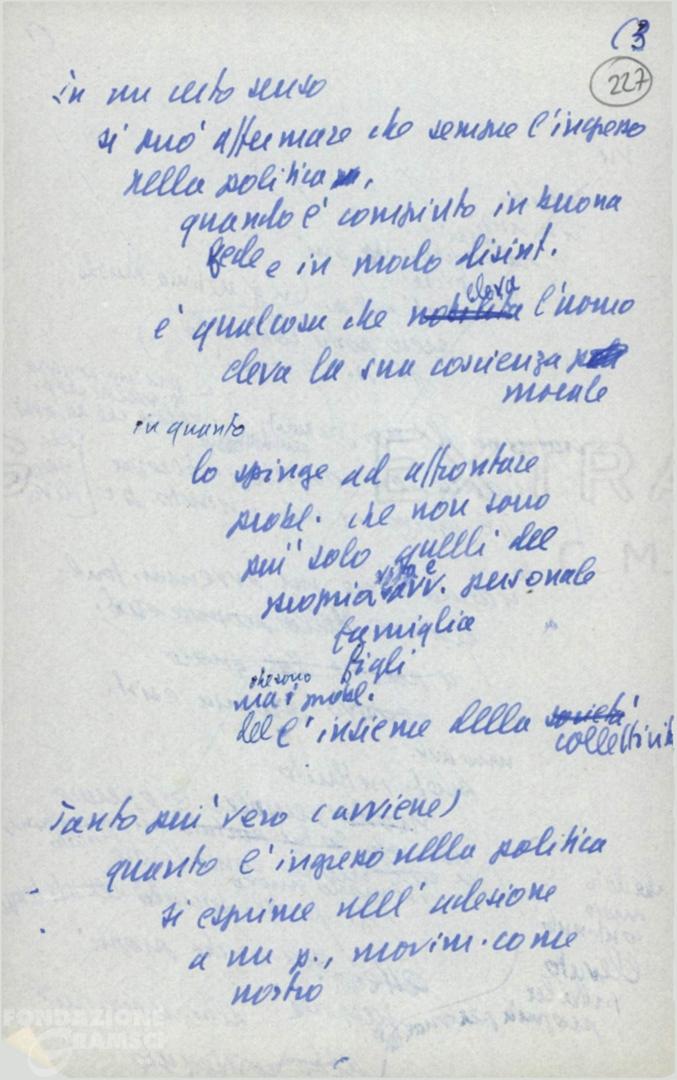 (3
227
in un certo senso
si può affermare che sempre l'ingresso
nella politica,
quando è compiuto in buona
fede e in modo disint.
eleva
è qualcosa che nobilita l'uomo
eleva la sua coscienza
morale
in quanto
lo spinge ad affrontare
probl. che non sono
più solo quelli del
vita e
propria avv. personale
famiglia
figli
che sono
ma i probl.
dell'insieme della società
collettività
Tanto più vero (avviene)
quanto l'ingresso nella politica
si esprime nell'adesione
a un p., movim. come
nostro
FONDAZIONE
GRAMSCI